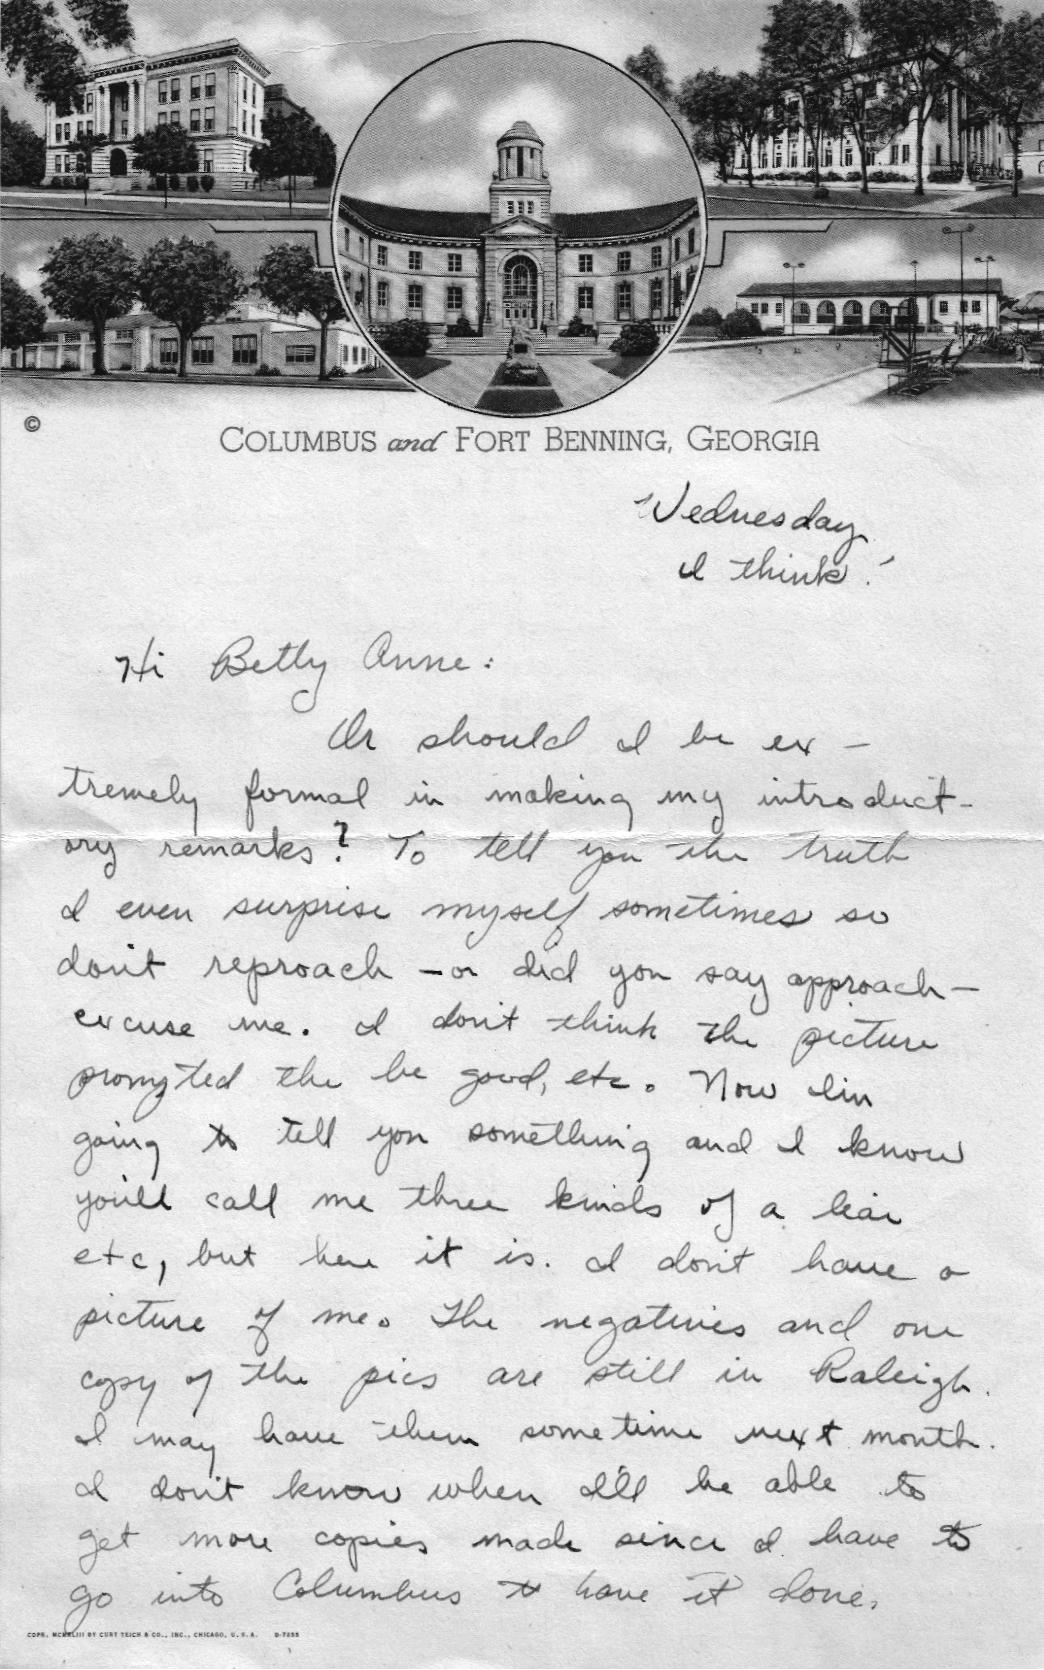 ©
COLUMBUS and FORT BENNING, GEORGIA
Wednesday
I think!
Hi Betty Anne:
Or should I be ex-
tremely formal in making my introduct-
ory remarks? To tell you the truth
I even surprise myself sometimes so
don't reproach - or did you say approach -
excuse me. I don't think the picture
prompted the be good, etc. Now I'm
going to tell you something and I know
you'll call me three kinds of a liar
etc, but here it is. I don't have a
picture of me. The negatives and one
copy of the pics are still in Raleigh.
I may have them sometime next month.
I don't know when I'll be able to
get more copies made since I have to
go into Columbus to have it done.
COPR. MCMXLIII BY CURT TEICH & CO., INC., CHICAGO, U.S.A. D-7255